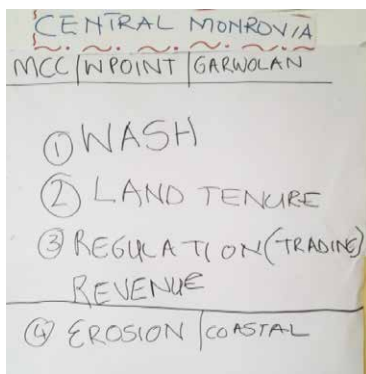 CENTRAL MONROVIA
MCC | WPOINT | GARWOLAN
① WASH
② LAND TENURE
③ REGULATION (TRADING)
REVENUE
④ EROSION | COASTAL